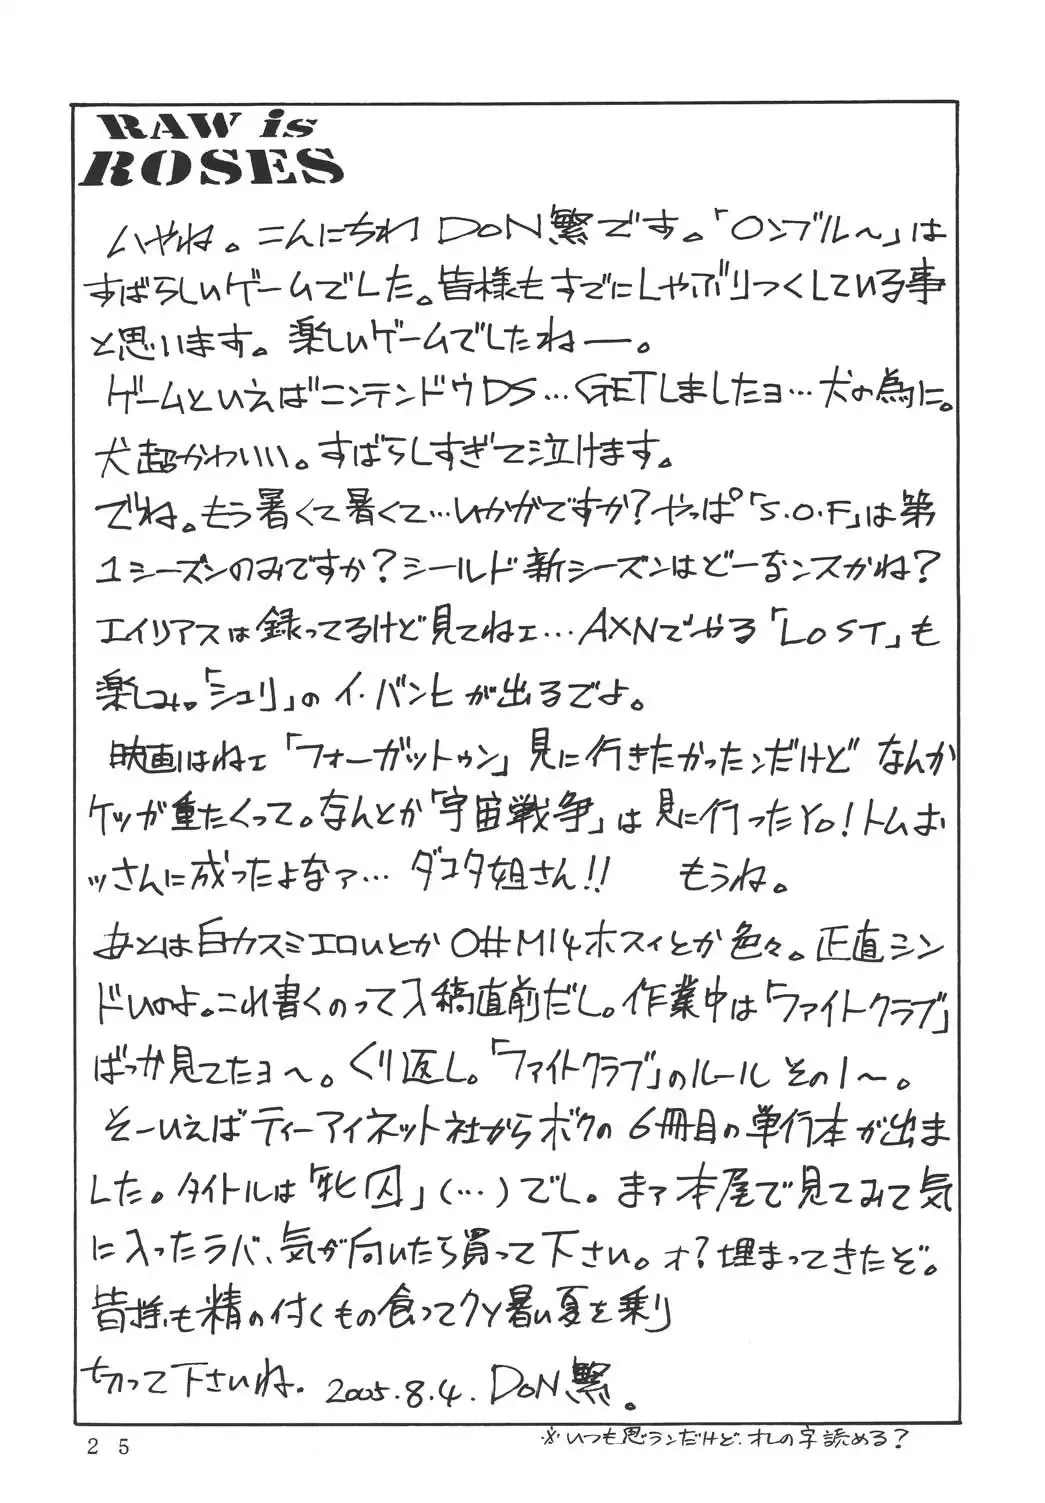 RAW is
ROSES
いやね。こんにちわ DoN繁です。「ロンブル〜」は
すばらしいゲームでした。皆様もすでにしゃぶりつくしている事
と思います。楽しいゲームでしたねー。
ゲームといえばニンテンドウDS…GETしましたヨ…犬の為に。
犬超かわいい。すばらしすぎて泣けます。
でね。もう暑くて暑くて…いかがですか?やっぱ「S.O.F」は第
1シーズンのみですか?シールド新シーズンはどーなンスかね?
エイリアスは録ってるけど見てねェ…AXNでやる「LOST」も
楽しみ。「シュリ」のイ・バンヒが出るでよ。
映画はねェ「フォーガットゥン」見に行きたかったンだけど なんか
ケツが重たくって。なんとか「宇宙戦争」は見に行ったYo!トムお
ッさんに成ったよなァ… ダコタ姐さん!! もうね。
あとは白カスミエロいとか O#M14ホスィとか色々。正直シン
ドいのよ。これ書くのって入稿直前だし。作業中は「ファイトクラブ」
ばっか見てたヨ〜。くり返し。「ファイトクラブ」のルール その1〜。
そーいえばティーアイネット社からボクの6冊目の単行本が出ま
した。タイトルは「牝囚」(…)でし。まァ本屋で見てみて気
に入ったラバ、気が向いたら買って下さい。オ?埋まってきたぞ。
皆様も精の付くもの食ってクソ暑い夏を乗り
切って下さいね。2005.8.4. DoN繁。
※いつも思うンだけど、オレの字読める?
25